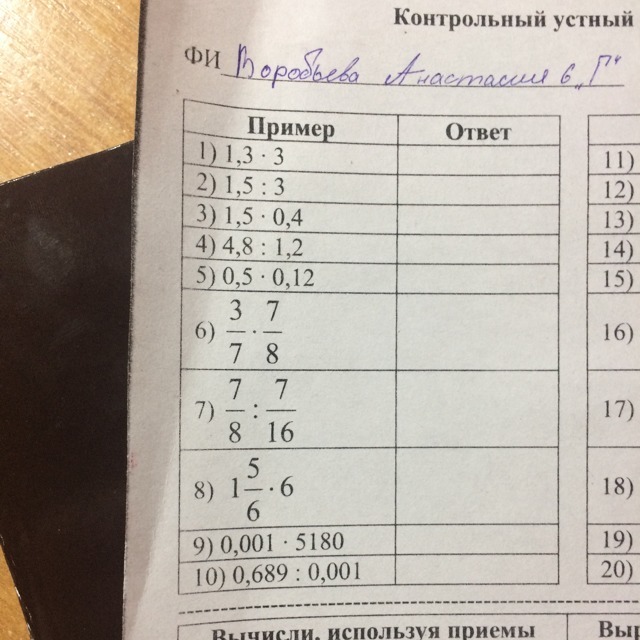 Контрольный устный
ФИ Воробьева Анастасия 6 „Г"
Пример Ответ
1) 1,3 · 3
2) 1,5 : 3
3) 1,5 · 0,4
4) 4,8 : 1,2
5) 0,5 · 0,12
6) 3/7 · 7/8
7) 7/8 : 7/16
8) 1 5/6 · 6
9) 0,001 · 5180
10) 0,689 : 0,001
11)
12)
13)
14)
15)
16)
17)
18)
19)
20)
Вычисли, используя приемы